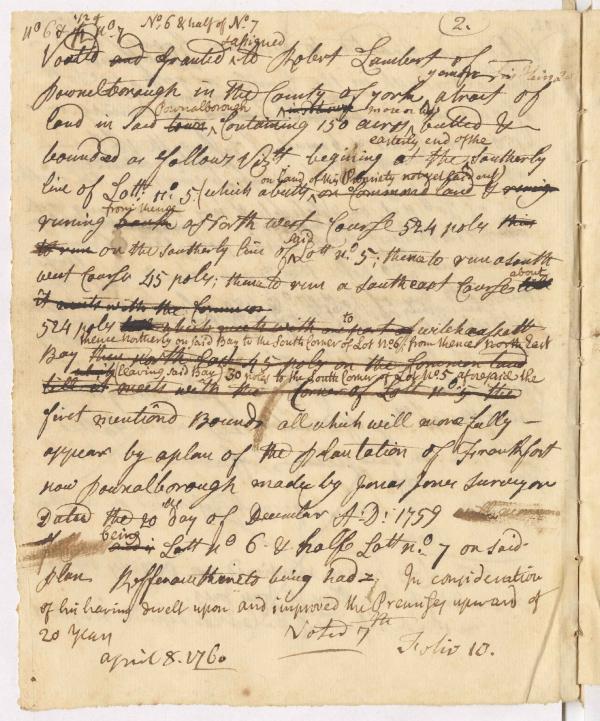 No 6 & 1/2 of No 7
No. 6 & half of No 7
2.
Voted and Granted & assigned to Robert Lambert of
Pownalborough in the County of york yeoman a tract of
land in said town Pownalborough Containing 150 acres more or less butted &
bounded as follows Vizt begining at the easterly end of the Southerly
line of Lott no. 5 (which abutts on Land of this Propriety not yet laid out) on Common land &
runing from thence a North west Course 524 poles
to run on the Southerly line of said Lott no. 5; thence to run a south
west Course 45 poles; thence to run a Southeast Course about
it meets with the Common
524 poles which meets with to wiskeasett
thence northerly on said Bay to the South Corner of Lot No 6, from thence North East
Bay then North East 45 poles on the Common land
(leaving said Bay) 30 poles to the South Corner of Lot No. 5 aforesaid the
till it meets with the Corner of Lott no. 5 the
first mentiond Bounds all which will more fully
appear by a plan of the plantation of Frankfort
now Pownalborough made by Jonas Jones Surveyor
Dated the 20th day of December A:D: 1759
being Lott no 6 & half Lott no. 7 on said
plan Refference thereto being had, In consideration
of his having dwelt upon and improved the Premises upward of
20 Years Voted 7th
april 8. 1760 Folio 10.